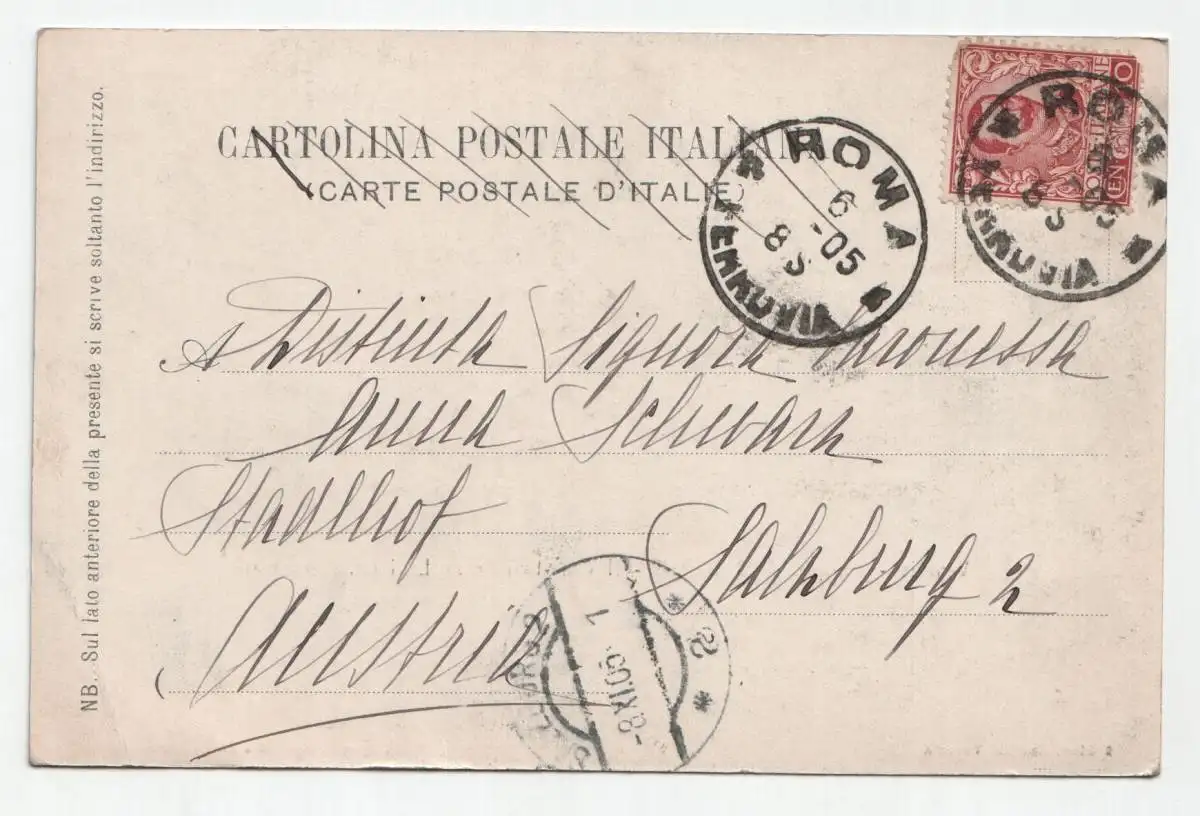 CARTOLINA POSTALE ITALIANA
(CARTE POSTALE D'ITALIE)
NB. Sul lato anteriore della presente si scrive soltanto l'indirizzo.
ROMA
6
-05
8 S
FERROVIA
ROMA
05
8 S
FERROVIA
POSTE ITALIANE
CENT. 10
A Distinta Signora Baronessa
Anna Schwarz
Stadlhof
Salzburg 2
Austria
SALZBURG 2
-8.XI.05 1
* 2 *